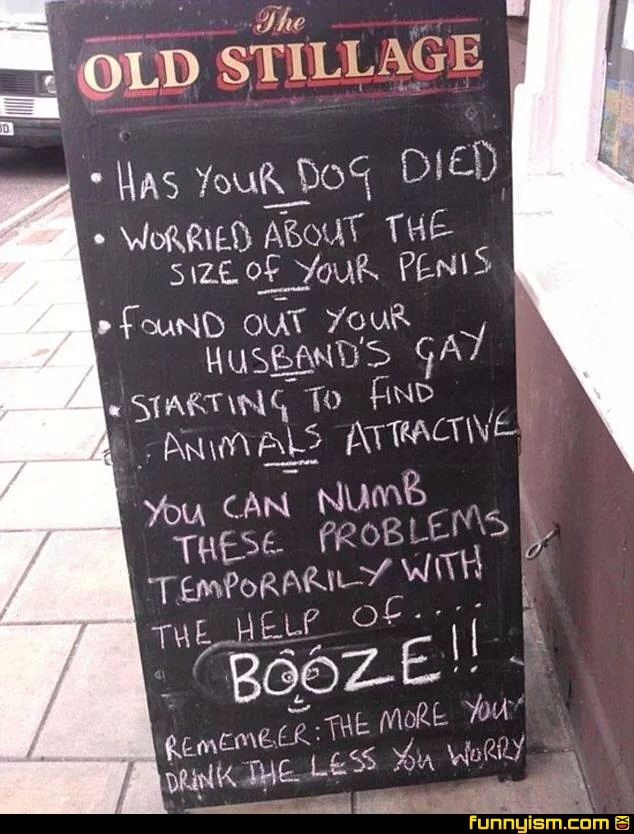 The
OLD STILLAGE
• HAS YOUR DOG DIED
• WORRIED ABOUT THE
SIZE OF YOUR PENIS
• FOUND OUT YOUR
HUSBAND'S GAY
• STARTING TO FIND
ANIMALS ATTRACTIVE
YOU CAN NUMB
THESE PROBLEMS
TEMPORARILY WITH
THE HELP OF....
BOOZE!!
REMEMBER: THE MORE YOU
DRINK THE LESS YOU WORRY
funnyism.com